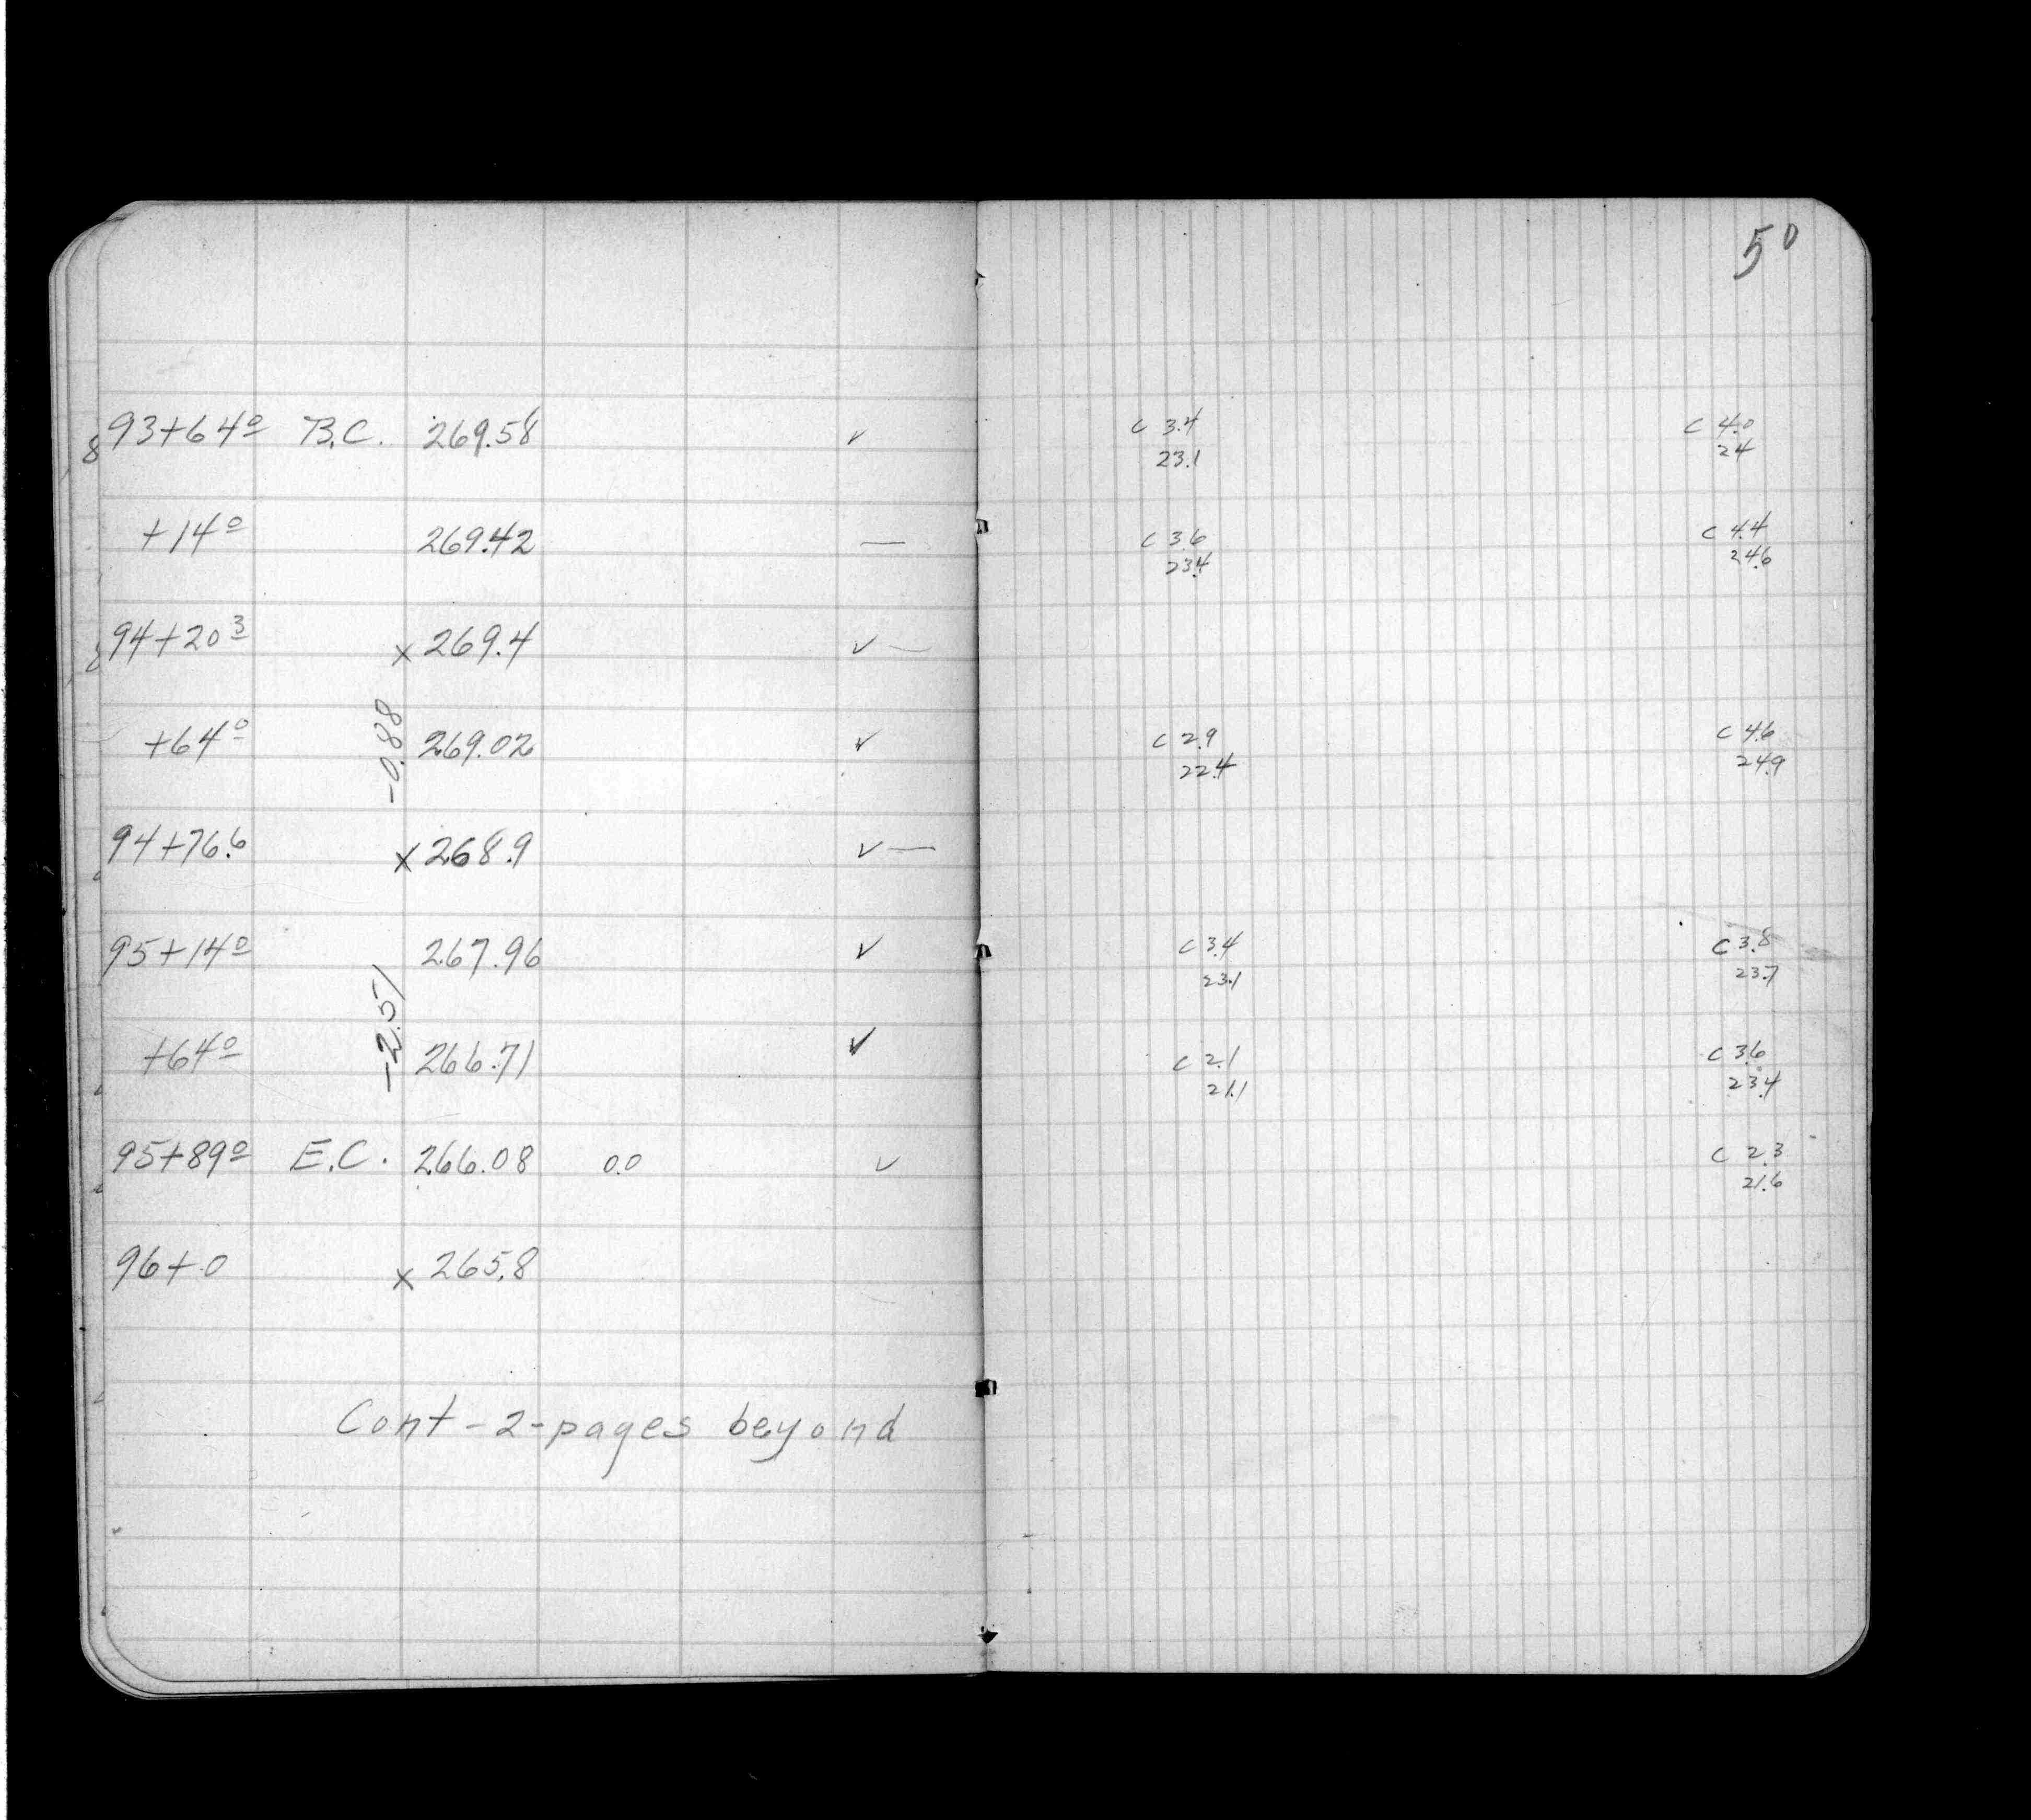 50
93+64º B.C. 269.58 ✓ C 3.4 C 4.0
23.1 24
+14º 269.42 — C 3.6 C 4.4
23.4 24.6
94+20³ × 269.4 ✓ —
-0.88
+64º 269.02 ✓ C 2.9 C 4.6
22.4 24.9
94+76.6 × 268.9 ✓ —
95+14º 267.96 ✓ C 3.4 C 3.8
23.1 23.7
-2.51
+64º 266.71 ✓ C 2.1 C 3.6
21.1 23.4
95+89º E.C. 266.08 0.0 ✓ C 2.3
21.6
96+0 × 265.8
Cont-2-pages beyond